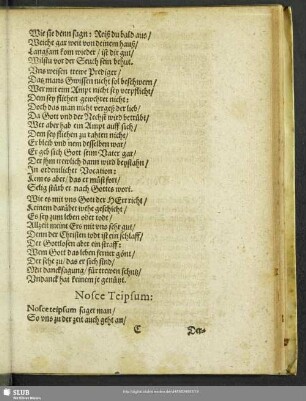 Wie sie denn sagn: Reiß du bald aus/
Weiche gar weit von deinem hauß/
Langsam kom wieder/ ist dir gut/
Wilstu vor der Seuch sein behut.
Uns weisen trewe Prediger/
Das mans Gwissen nicht sol beschwern/
Wer mit eim Ampt nicht sey verpflicht/
Dem sey fliehen gewehret nicht:
Doch das man nicht vergeß der lieb/
Da Gott und der Nechst wird betrübt/
Wer aber hab ein Ampt auff sich/
Dem sey fliehen zu rahten nicht/
Er bleib und nem desselben war/
Er geb sich Gott seim Vater gar/
Der jhm trewlich dann wird beystahn/
In ordenlicher Vocation:
Kem es aber/ das er müst fort/
Selig stürb er nach Gottes wort.
Wie es mit uns Gott der HErr richt/
Keinem darüber wehe geschicht/
Es sey zum leben oder todt/
Allzeit meint Ers mit uns sehr gut/
Denn der Christen todt ist ein schlaff/
Der Gottlosen aber ein straff:
Wem Gott das leben ferner gönt/
Der sehe zu/ das er sich find/
Mit dancksagung/ für trewen schutz/
Undanck hat keinem je genützt.
Nosce Teipsum:
Nosce teipsum saget man/
So uns zu der zeit auch geht an/
C Der-
SLUB